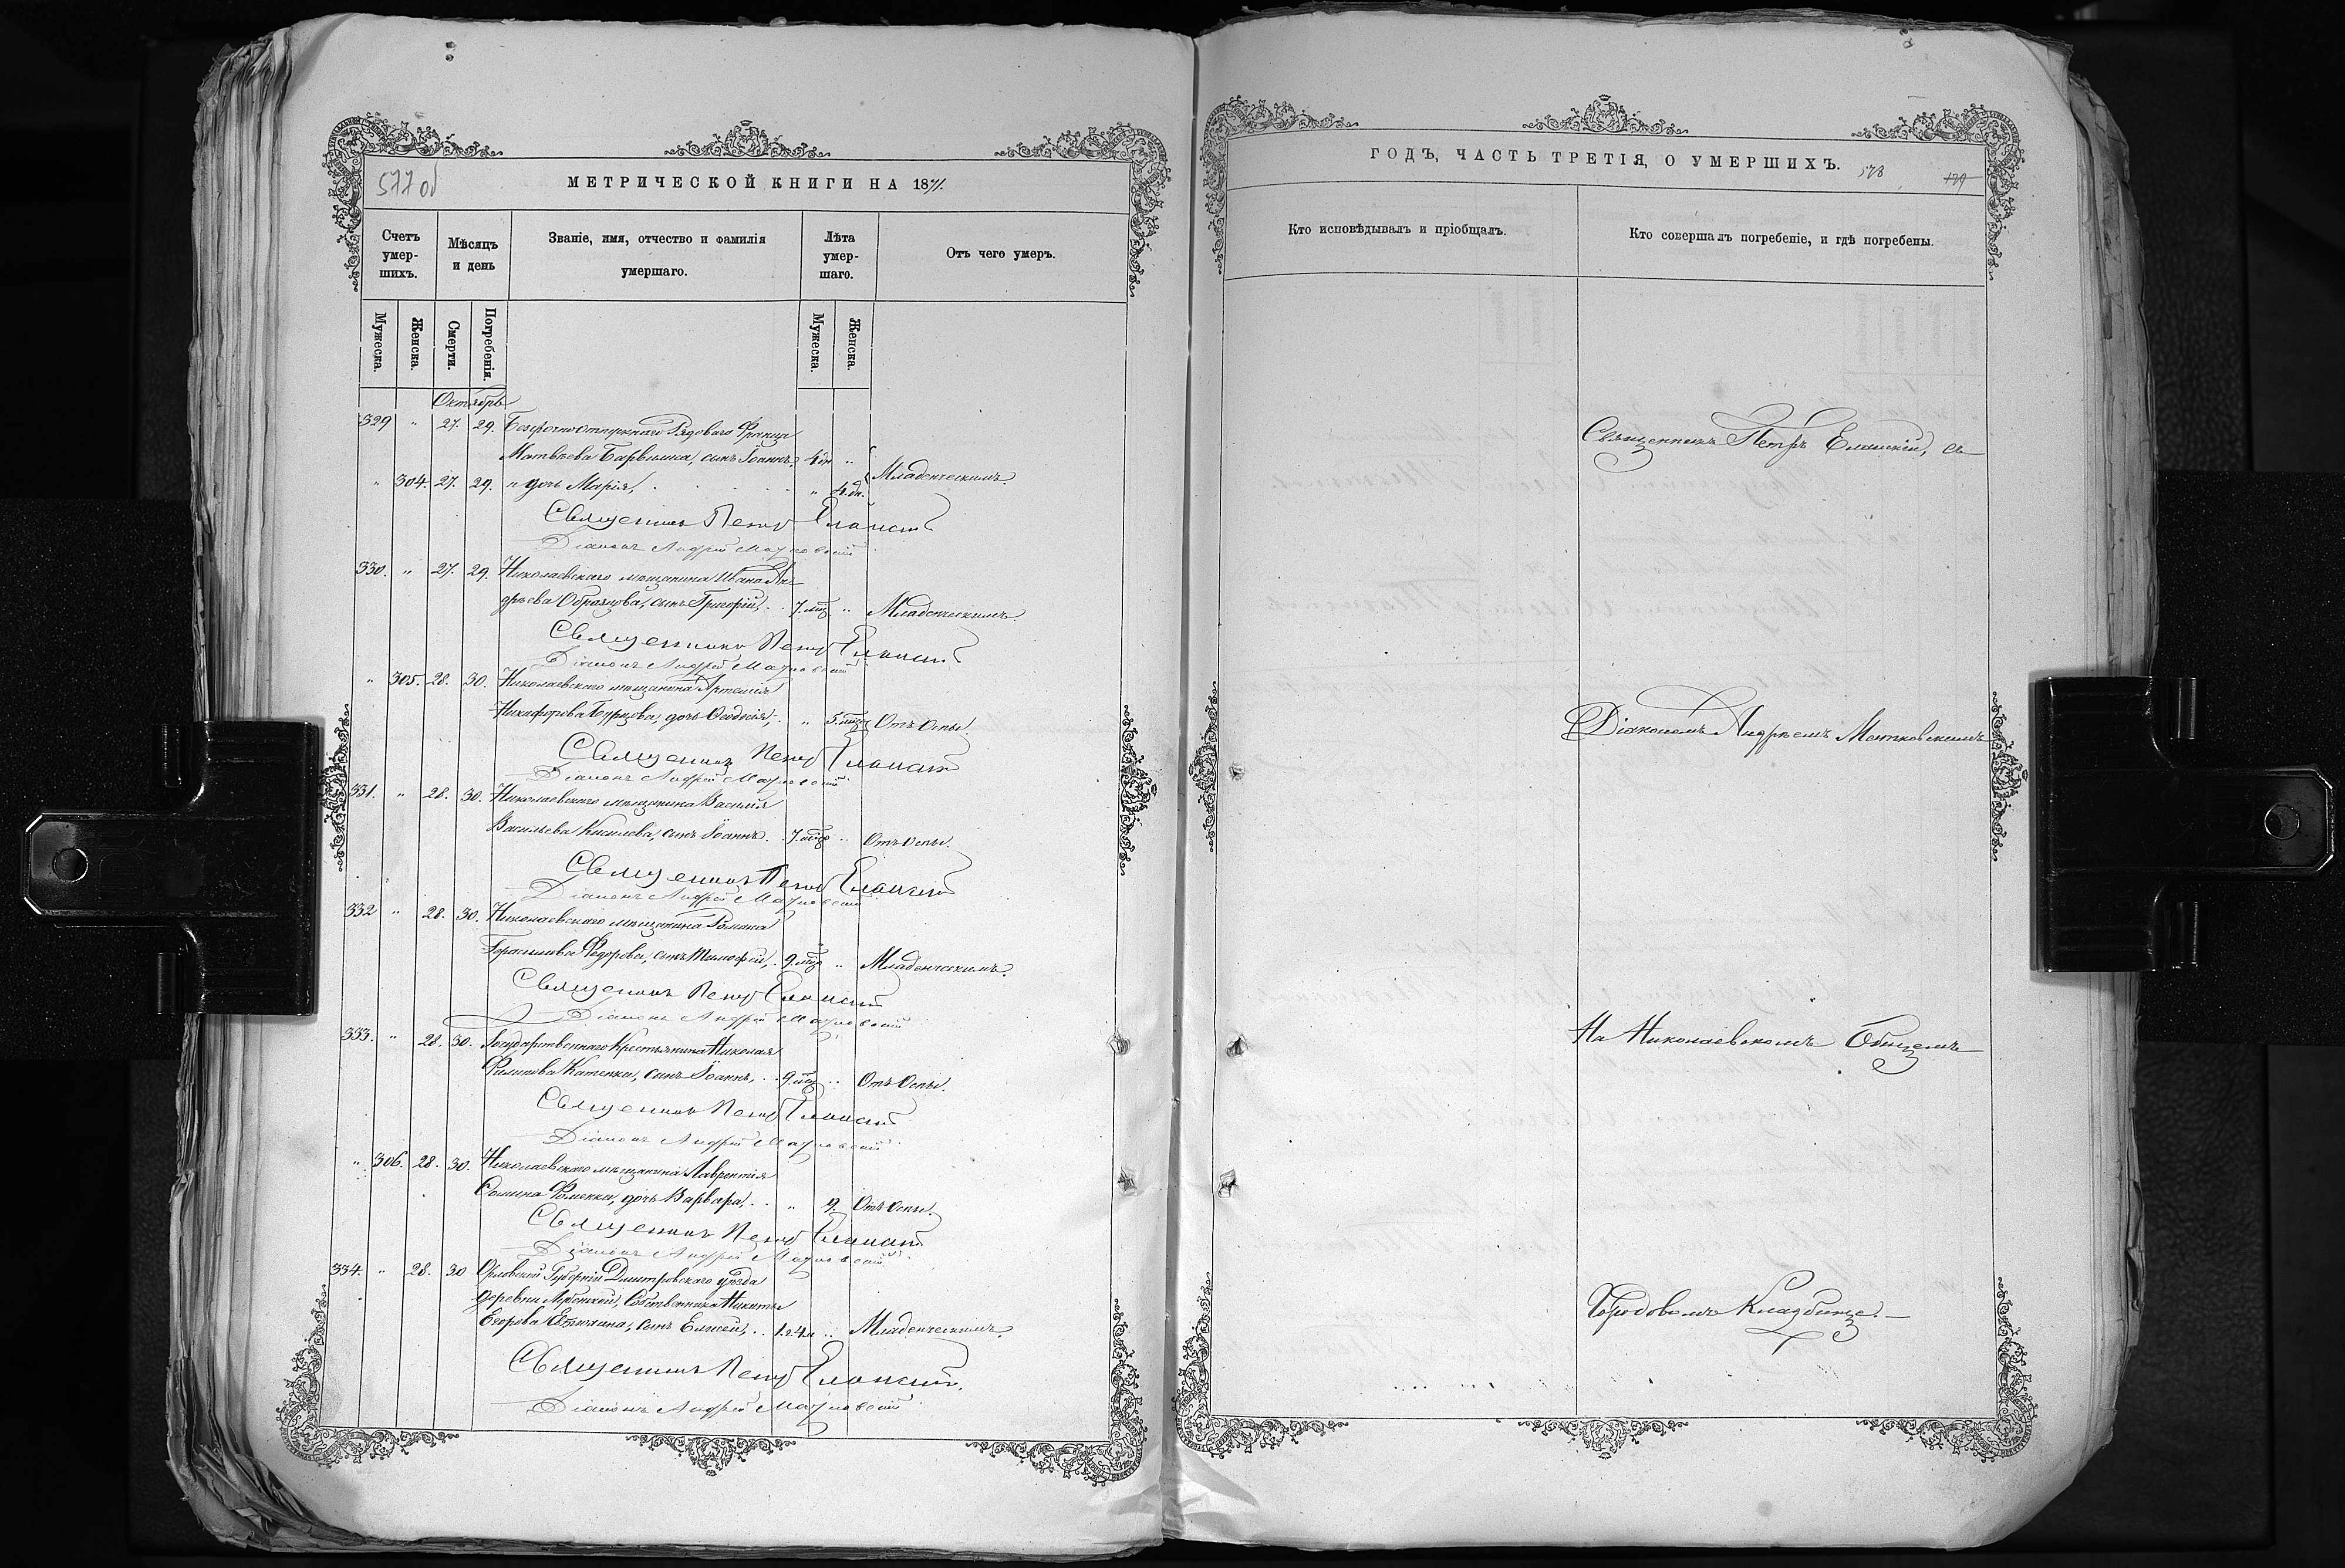 577 об
МЕТРИЧЕСКОЙ КНИГИ НА 1871.
Счетъ умер-шихъ.
Мѣсяцъ и день
Званіе, имя, отчество и фамилія умершаго.
Лѣта умер-шаго.
Отъ чего умеръ.
Мужеска.
Женска.
Смерти.
Погребенія.
Мужеска.
Женска.
Октябрь
329 " 27. 29. Безсрочноотпускнаго Рядоваго Франца
Матвѣева сынъ Іоаннъ, 4 дн "
" 304. 27. 29. " дочь Марія, " 4 дн. Младенческимъ.
Священникъ Петръ Еланскій
Діаконъ Андрей Матковскій
330. " 27. 29. Николаевскаго мѣщанина Ивана Ан-
дреева Образцова, сынъ Григорій, 7. мѣц " Младенческимъ.
Священникъ Петръ Еланскій
Діаконъ Андрей Матковскій
" 305. 28. 30. Николаевскаго мѣщанина Артемія
Никифорова Бурцова, дочь Ѳеодосія, " 5. мѣц Отъ Оспы.
Священникъ Петръ Еланскій
Діаконъ Андрей Матковскій
331. " 28. 30. Николаевскаго мѣщанина Василія
Васильева Киселева, сынъ Іоаннъ. 7. мѣц " Отъ Оспы.
Священникъ Петръ Еланскій
Діаконъ Андрей Матковскій
332 " 28. 30. Николаевскаго мѣщанина Романа
Герасимова Ѳедорова, сынъ Тимофей, 9. мѣц " Младенческимъ.
Священникъ Петръ Еланскій
Діаконъ Андрей Матковскій
333. " 28. 30. Государственнаго Крестьянина Николая
Филипова Катенки, сынъ Іоаннъ, 9. мѣц " Отъ Оспы.
Священникъ Петръ Еланскій
Діаконъ Андрей Матковскій
" 306. 28. 30. Николаевскаго мѣщанина Лаврентія
Сомина Фоменки, дочь Варвара, " 9. Отъ Оспы.
Священникъ Петръ Еланскій
Діаконъ Андрей Матковскій
334. " 28. 30 Орловской Губерніи Дмитровскаго уѣзда
деревни Собственника Никиты
Егорова сынъ Елисей, 1. г. 4. м " Младенческимъ.
Священникъ Петръ Еланскій,
Діаконъ Андрей Матковскій
ГОДЪ, ЧАСТЬ ТРЕТІЯ, О УМЕРШИХЪ.
578
179
Кто исповѣдывалъ и пріобщалъ.
Кто совершалъ погребеніе, и гдѣ погребены.
Священникъ Петръ Еланскій, съ
Діакономъ Андреемъ Матковскимъ
На Николаевскомъ Общемъ
Городовомъ Кладбище.